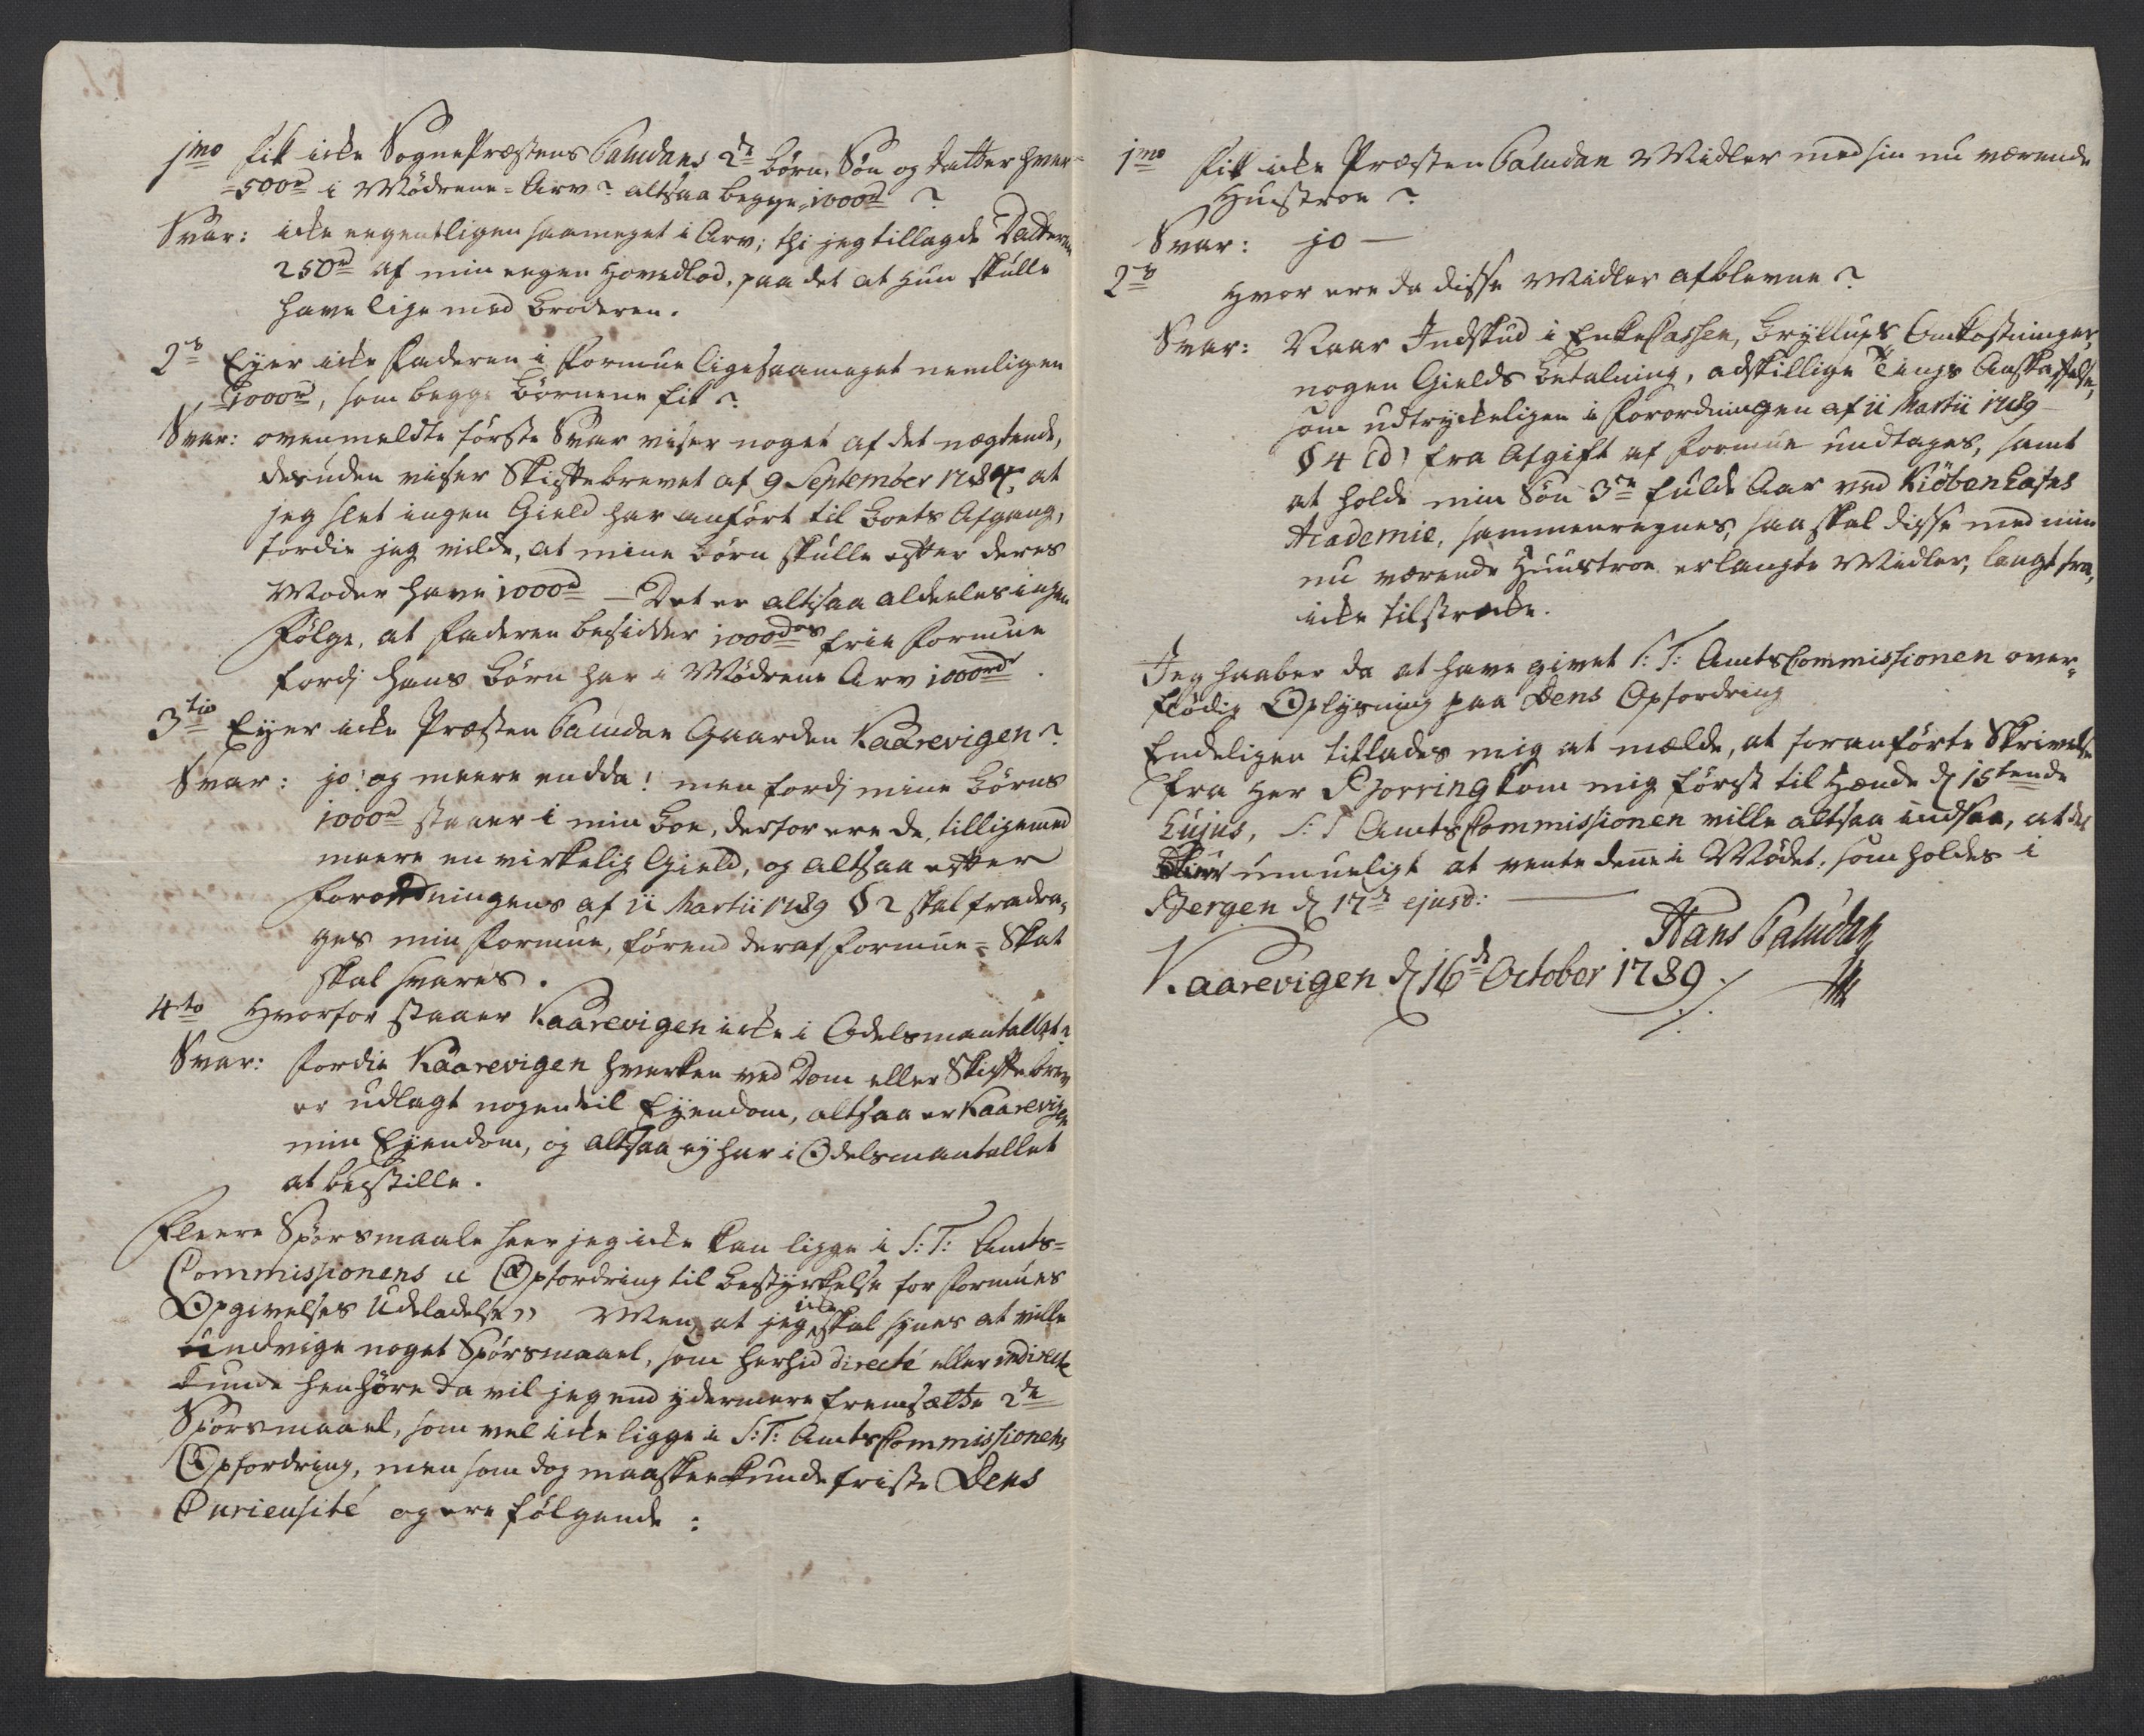 1mo fik icke SognePræstens Paludans 2de Børn, Søn og Datter hver
500rd i Mødrene-Arv? altsaa begge 1000rd ?
Svar: icke eegentligen saameget i Arv; thi jeg tillagde Datteren
250rd af min eegen Hovedlod, paa det at hun skulle
have lige med Broderen.
2do Eyer icke Faderen i Formue ligesaameget nemligen
1000rd, som begge Børnene fik?
Svar: ovenmeldte første Svar viser noget af det nægtende,
desuden viser Skiftebrevet af 9 September 1784, at
jeg slet ingen Gield har anført til Boets Afgang,
fordie jeg vilde, at mine Børn skulle efter deres
Moder have 1000rd — Det er altsaa aldeeles ingen
Følge, at Faderen besidder 1000rdrs frie Formue
fordj hans Børn har i Mødrene Arv 1000rdr.
3tio Eyer icke Præsten Paludan Gaarden Kaarevigen?
Svar: jo! og meere endda! men fordj mine Børns
1000rd staaer i min Boe, derfor ere de, tilligemed
meere en virkelig Gield, og altsaa efter
Forordningens af 11 Martii 1789 § 2 skal fradra-
ges min Formue, førend deraf Formue-Skat
skal svares.
4to Hvorfor staaer Kaarevigen icke i Odelsmantallet?
Svar: Fordie Kaarevigen hverken ved Dom eller Skiftebrev
er udlagt nogen til Eyendom, altsaa er Kaarevigen
min Eyendom, og altsaa ey har i Odelsmantallet
at bestille.
Fleere Spørsmaale seer jeg icke kan ligge i S: T: Amts-
Commissionens " Opfordring til Bestyrkelse for Formues
Opgivelses Udeladelse" Men at jeg icke skal synes at ville
undvige noget Spørsmaal, som herhid directé eller indirecte
kunde henhøre da vil jeg end ydermere fremsætte 2de
Spørsmaal, som vel icke ligge i S: T: AmtsCommissionens
Opfordring, men som dog maaskee kunde friste Dens
Curieusité og ere følgende:
1mo Fik icke Præsten Paludan Midler med sin nu værende
Hustroe?
Svar: jo —
2do Hvor ere da disse Midler afblevne?
Svar: Naar Indskud i EnkeCassen, Bryllups Omkostninger,
nogen Gields Betalning, adskillige Tings Anskaffelse,
som udtryckeligen i Forordningen af 11 Martii 1789
§ 4 (d) fra Afgift af Formue undtages, samt
at holde min Søn 3de fulde Aar ved Kiøbenhafns
Academie, sammenregnes, saa skal disse med min
nu værende Huustroe erlangte Midler, langt fra,
icke tilstrecke.
Jeg haaber da at have givet S: T: AmtsCommissionen over-
flødig Oplysning paa Dens Opfordring
Endeligen tillades mig at mælde, at foranførte Skrivelse
fra Her Bjorring kom mig først til Hænde d 15tende
hujus, S: T AmtsCommissionen ville altsaa indsee, at det
bliver umueligt at vente denne i Mødet, som holdes i
Bergen d 17de ejusd: —
Hans Paludan
Kaarevigen d 16de October 1789.